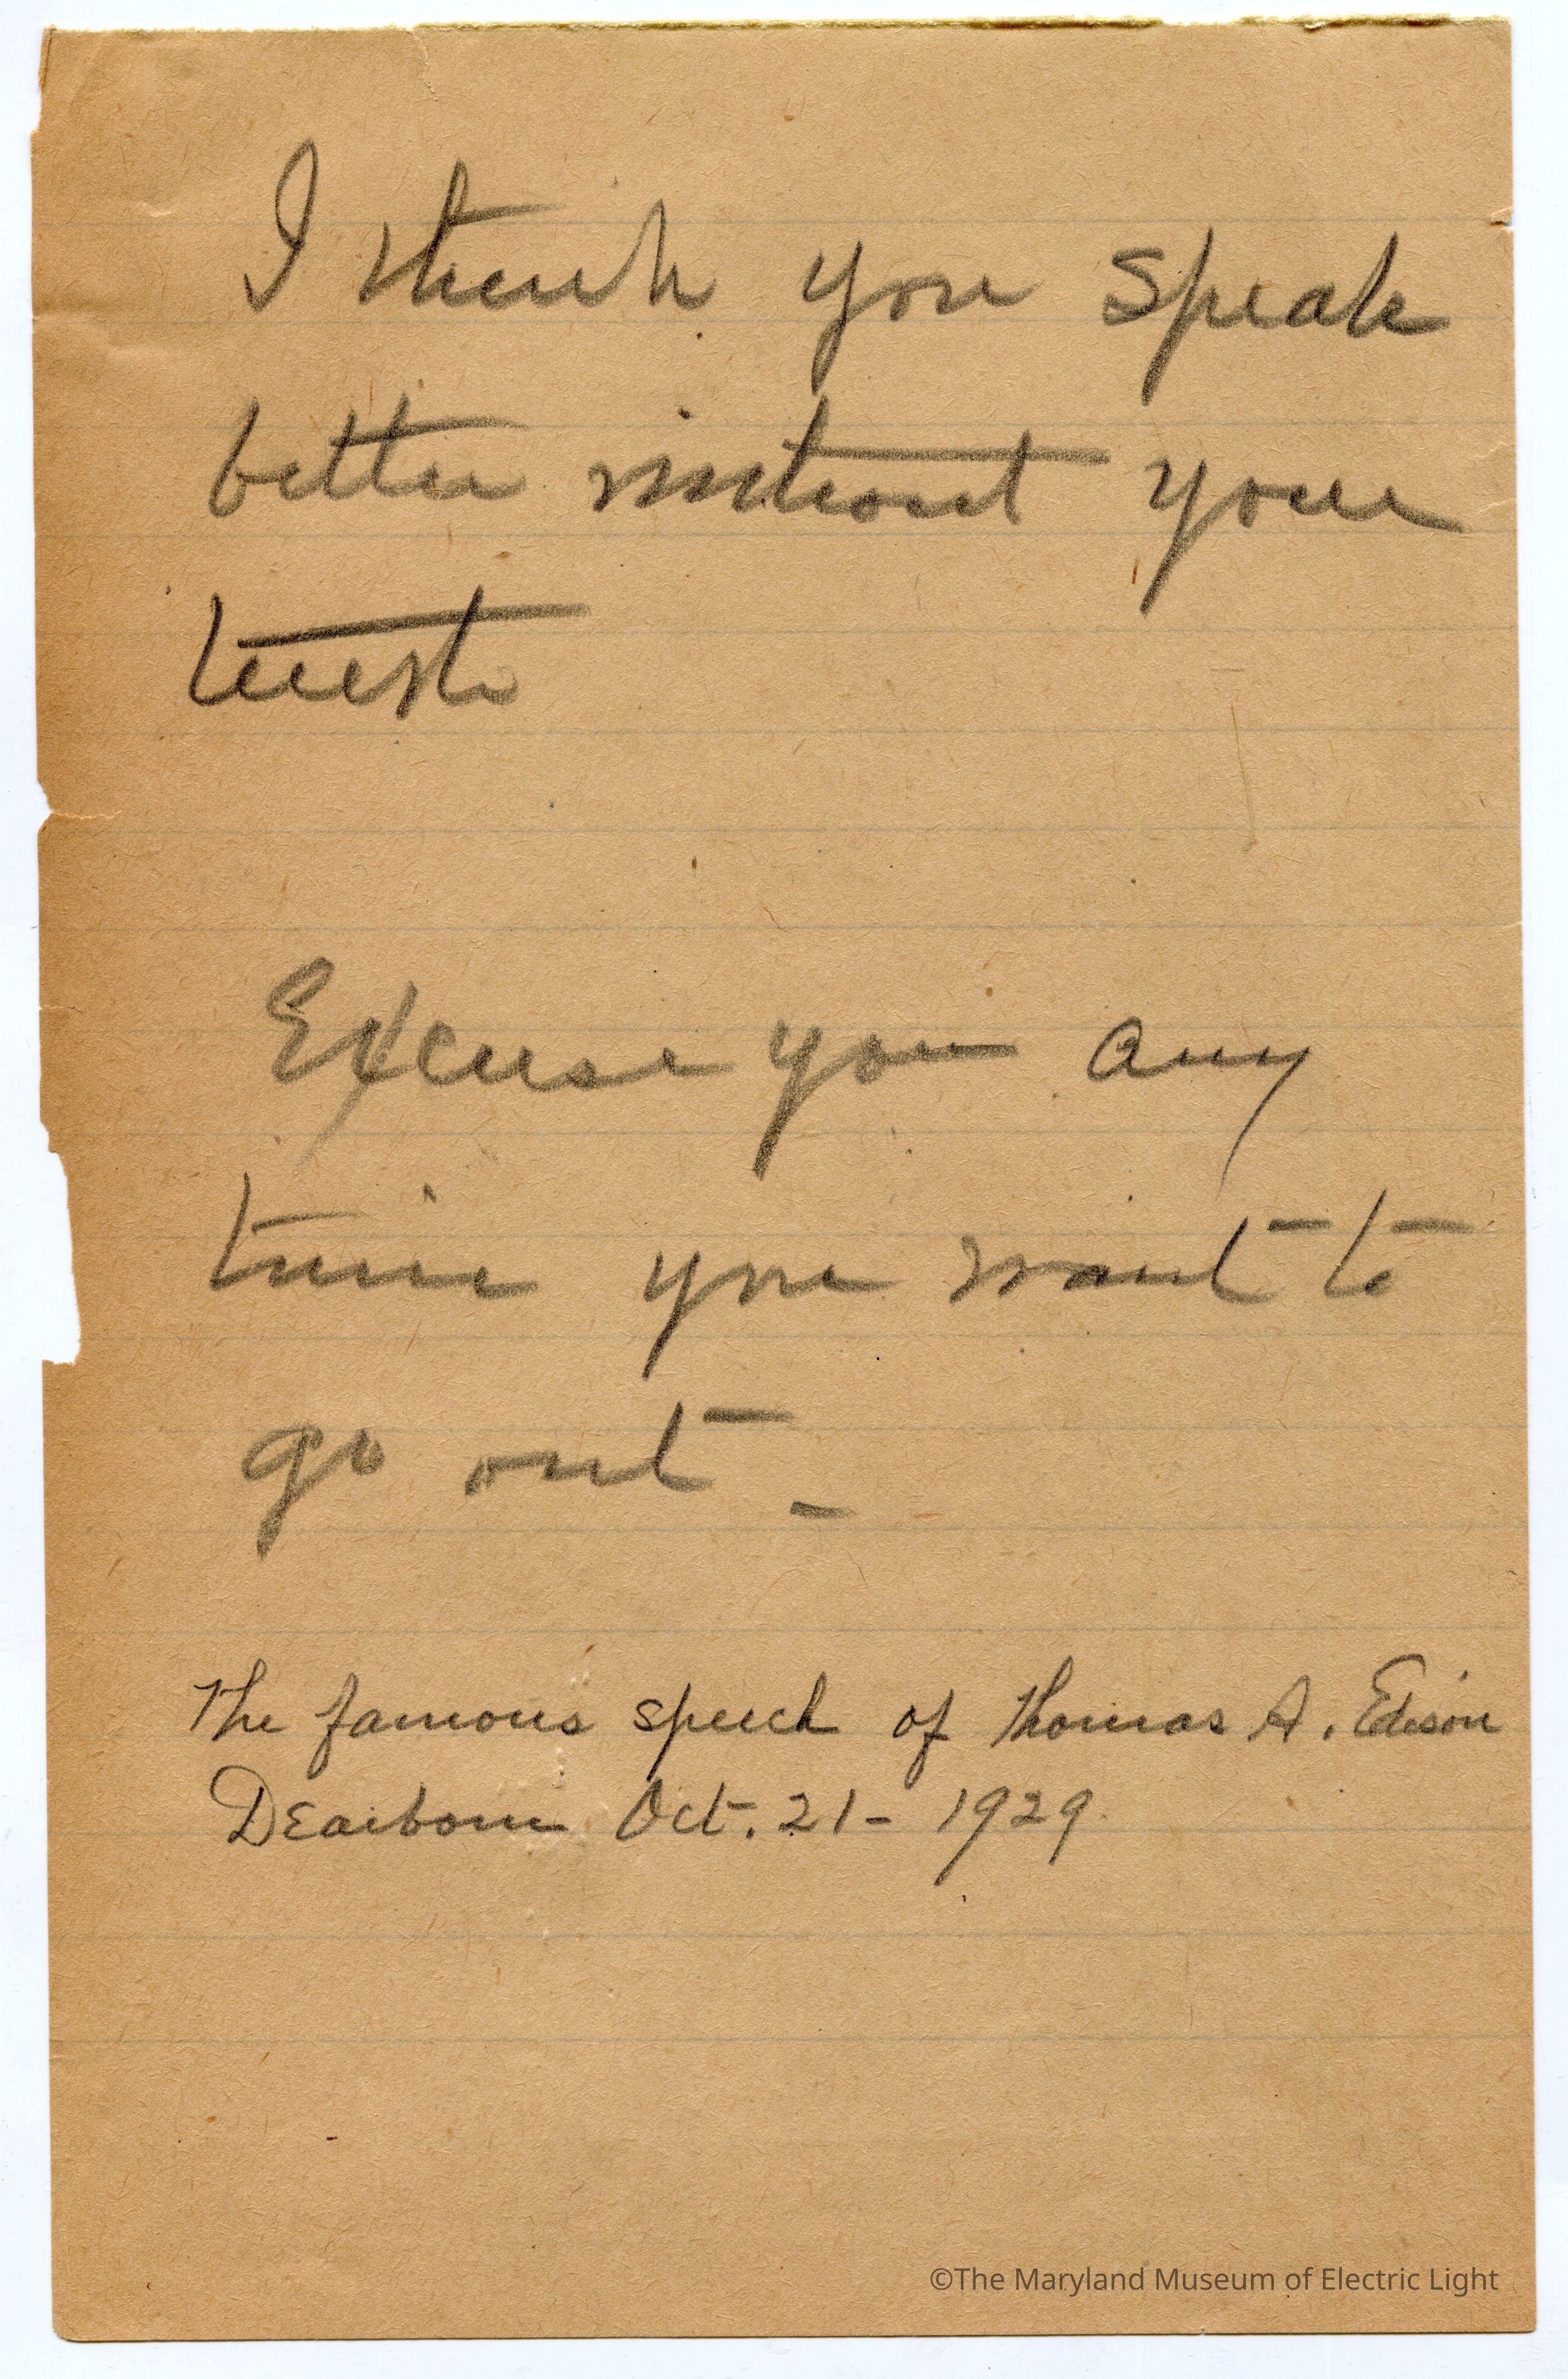 I think you speak
better without your
teeth
Excuse you any
time you want to
go out –
The famous speech of Thomas A. Edison
Dearborn Oct. 21 – 1929
©The Maryland Museum of Electric Light